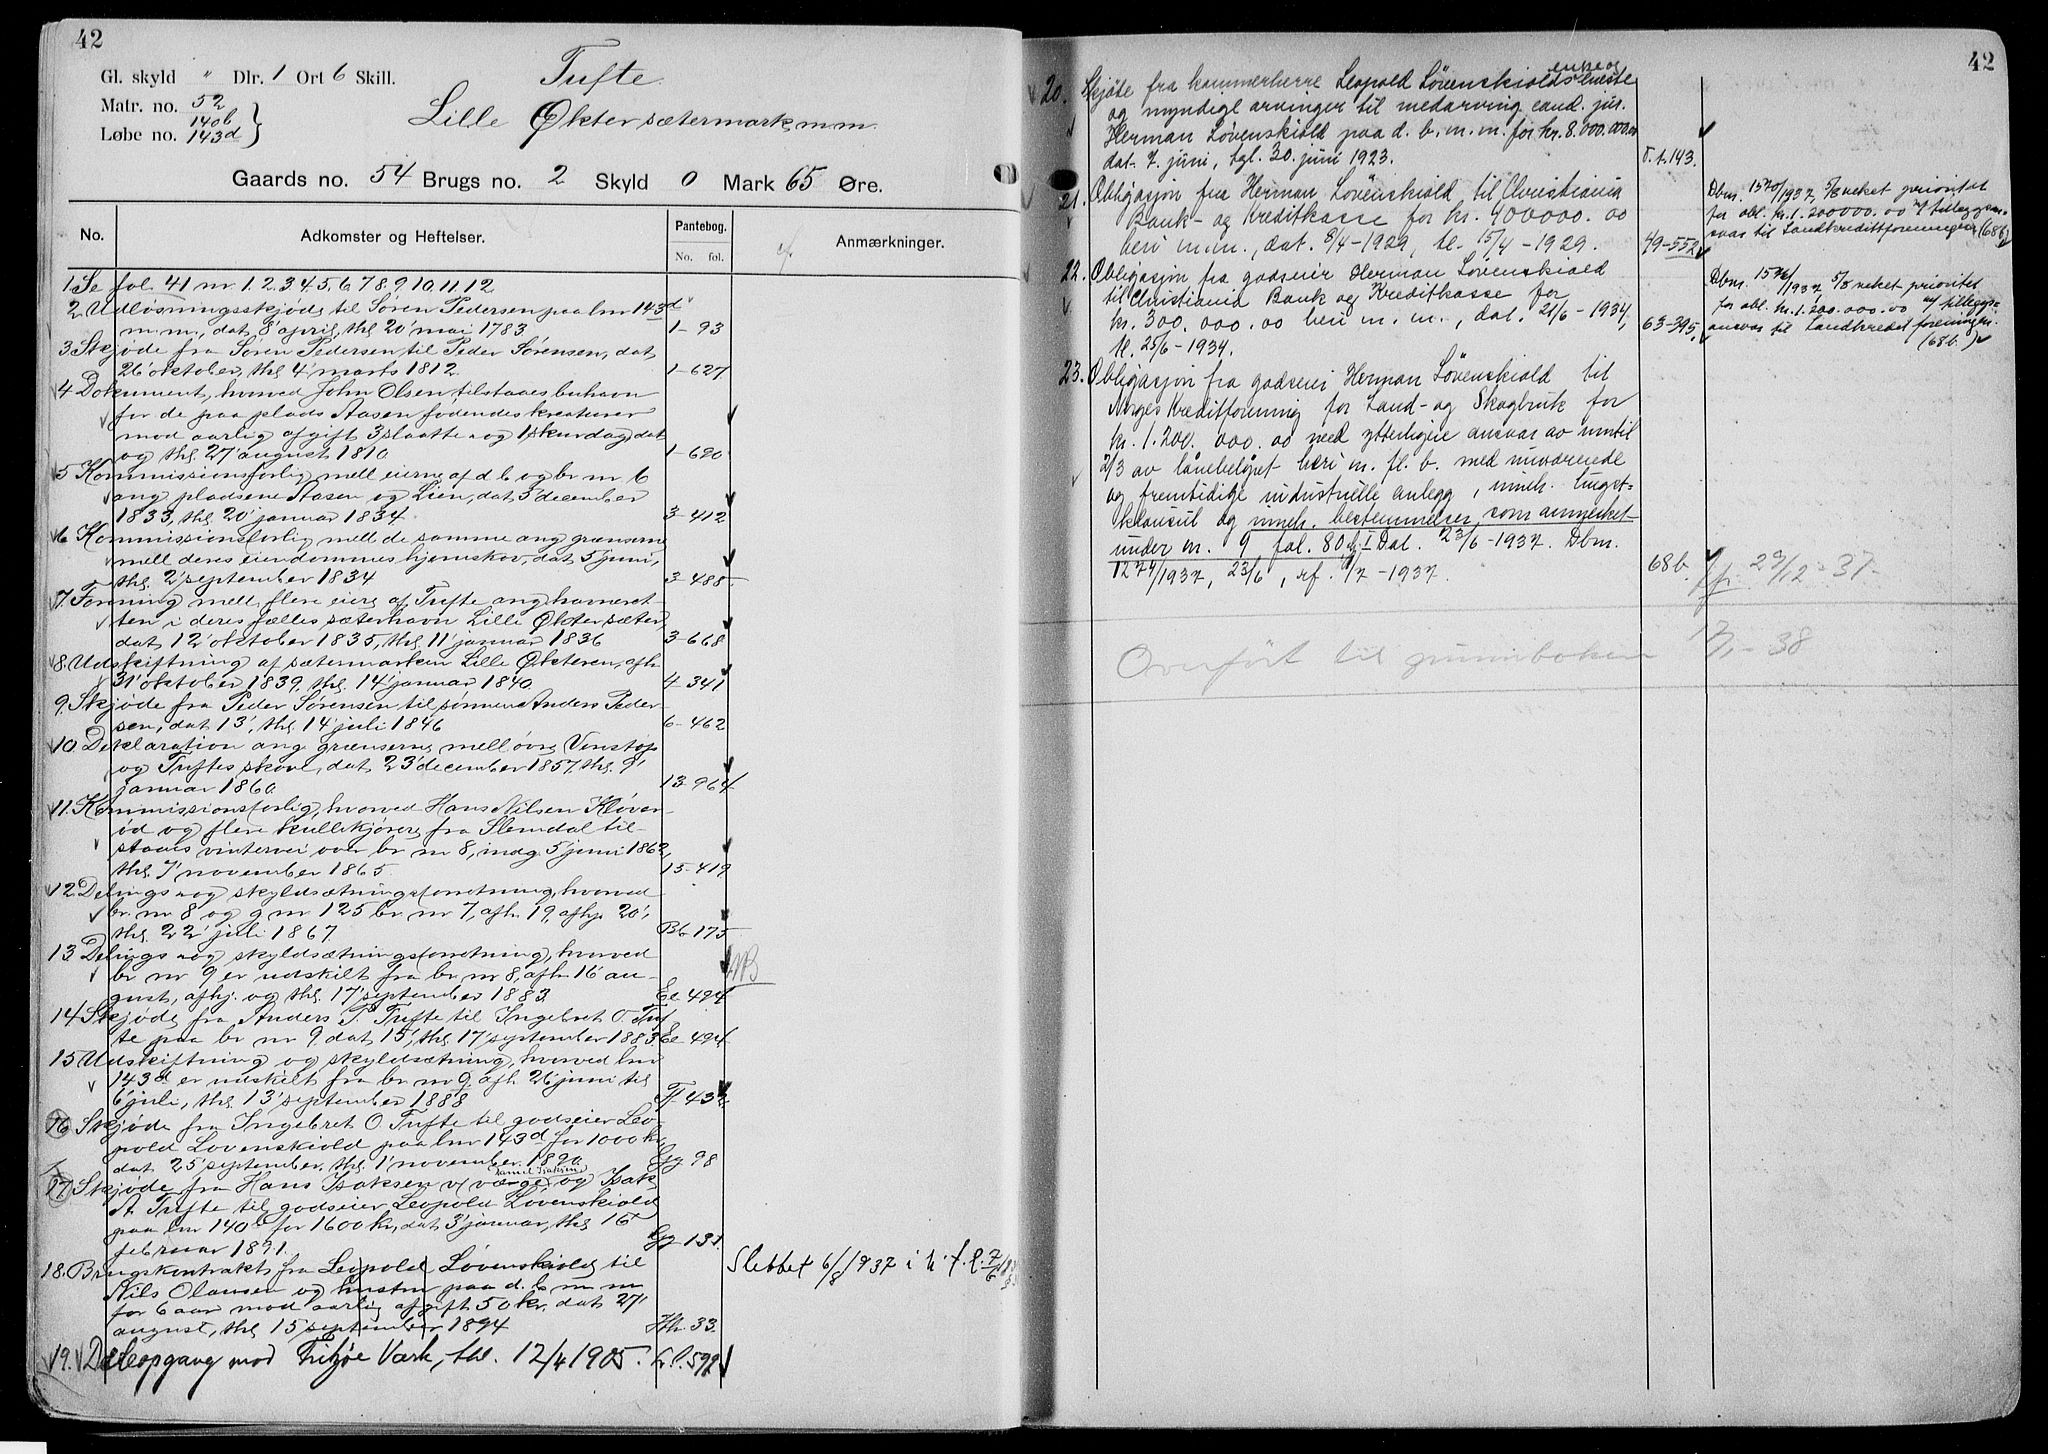 42
Gl. skyld " Dlr. 1 Ort 6 Skill.
Matr. no. 52
Løbe no. 140b 143d
Tufte
Lille Økter sætermark m m
Gaards no. 54 Brugs no. 2 Skyld 0 Mark 65 Øre.
No. Adkomster og Heftelser. Pantebog. No. fol. Anmærkninger.
1. Se fol. 41 nr 1. 2. 3. 4. 5. 6. 7. 8. 9. 10. 11. 12
2 Udløsningsskjøde til Søren Pedersen paa lnr 143d
m m, dat 8' april, thl 20' mai 1783. 1-93
3. Skjøde fra Søren Pedersen til Peder Sørensen, dat
26' oktober, thl 4' marts 1812. 1-627
4 Dokument, hvorved John Olsen tilstaaes buhavn
for de paa plads Aasen fødendes kreaturer
mod aarlig afgift 3 slaatte og 1 skurdag, dat
og thl 27' august 1810. 1-690
5 Kommissionsforlig mell eierne af d b og br nr 6
ang pladsene Aasen og Lien, dat 5' december
1833, thl 20' januar 1834. 3-412
6 Kommissionsforlig mell de samme ang grænserne
mell deres eiendommes hjemskov, dat 5' juni,
thl 2' september 1834 3-488
7. Forening mell flere eiere af Tufte ang havneret-
ten i deres fælles sæterhavn Lille Økter sæter,
dat 12' oktober 1835, thl 11' januar 1836 3-668
8. Udskiftning af sætermarken Lille Økteren, afh
31' oktober 1839, thl. 14' januar 1840. 4-341
9. Skjøde fra Peder Sørensen til sønnen Anders Peder-
sen, dat 13', thl 14' juli 1846 6-462
10. Deklaration ang grænserne mell øvre Venstøp
og Tuftes skove, dat 23' december 1857, thl 9'
januar 1860. 13-964
11. Kommissionsforlig, hvorved Hans Nilsen Kløver-
ød og flere kullekjørere fra Slemdal til-
staaes vintervei over br nr 8, indg 5' juni 1862,
thl 7' november 1865. 15-419
12. Delings- og skyldsætningsforretning, hvorved
br nr 8 og g nr 125 br nr 7, afh. 19', afhj. 20',
thl 22' juli 1867. Bb 175
13 Delings- og skyldsætningsforretning, hvorved
br nr 9 er udskilt fra br nr 8, afh 16' au- NB
gust, afhj. og thl 17' september 1883. Ee 494
14 Skjøde fra Anders P Tufte til Ingebret O. Tuf-
te paa br nr 9, dat 15', thl 17' september 1883. Ee 494
15 Udskiftning og skyldsætning, hvorved lnr
143d er udskilt fra br nr 9. afh 26' juni til
6' juli, thl 13' september 1888 Ff 432
16 Skjøde fra Ingebret O. Tufte til godseier Leo-
pold Løvenskiold paa lnr 143d for 1000 kr,
dat 25' september, thl 1' november 1890. Gg 98
17 Skjøde fra Hans Isaksen v/ værge og Isak
A Tufte til godseier Leopold Løvenskiold
paa lnr 140b for 1600 kr, dat 3' januar, thl 16'
februar 1891. Gg 131.
18. Brugskontrakt fra Leopold Løvenskiold til
Nils Olausen og hustru paa d. b. m m
for 6 aar mod aarlig afgift 50 kr, dat 27'
august, thl 15' september 1894 Hh 33.
Slettet 6/8 1937 i h. t. l. 7/6
19. Deleopgang mod Fritzøe Værk, thl. 12/4 1905.
42
20. Skjøde fra kammerherre Leopold Løvenskiolds enke og
og myndige arvinger til medarving cand. jur.
Herman Løvenskiold paa d. b. m. m. for kr. 8.000.000.00
dat. 7. juni, tgl. 30. juni 1923. 143.
21. Obligasjon fra Herman Løvenskiold til Christiania
Bank- og Kreditkasse for kr. 400000.00
heri m.m., dat. 8/4-1929, tl. 15/4-1929. 49-552
Dbnr. 1570/1937, veket prioritet
for obl. kr. 1.200000.00 m/ tilleggsan-
svar til Landkredittforeningen (68b)
22. Obligasjon fra godseier Herman Løvenskiold
til Christiania Bank og Kreditkasse for
kr. 300.000.00 heri m. m., dat. 21/6-1934,
tl. 25/6-1934. 63-395.
Dbnr. 1576/1937, 5/8 veket prioritet
for obl. kr. 1.200.000.00 m/ tilleggs-
ansvar til Landkredittforeningen.
(68b.)
23. Obligasjon fra godseier Herman Løvenskiold til
Norges Kreditforening for Land- og Skogbruk for
kr. 1.200.000.00 med ytterligere ansvar av inntil
2/3 av lånebeløpet heri m. fl. b. med nuværende
og fremtidige industrielle anlegg, inneh. tvangs-
klausul og inneh. bestemmelser som anmerket
under nr. 9, fol. 80, I Dat. 23/6-1937. Dbnr.
1274/1937, 23/6, rf. 1/7-1937. 68b.
29/12-37
Overført til grunnboken 13/1-38